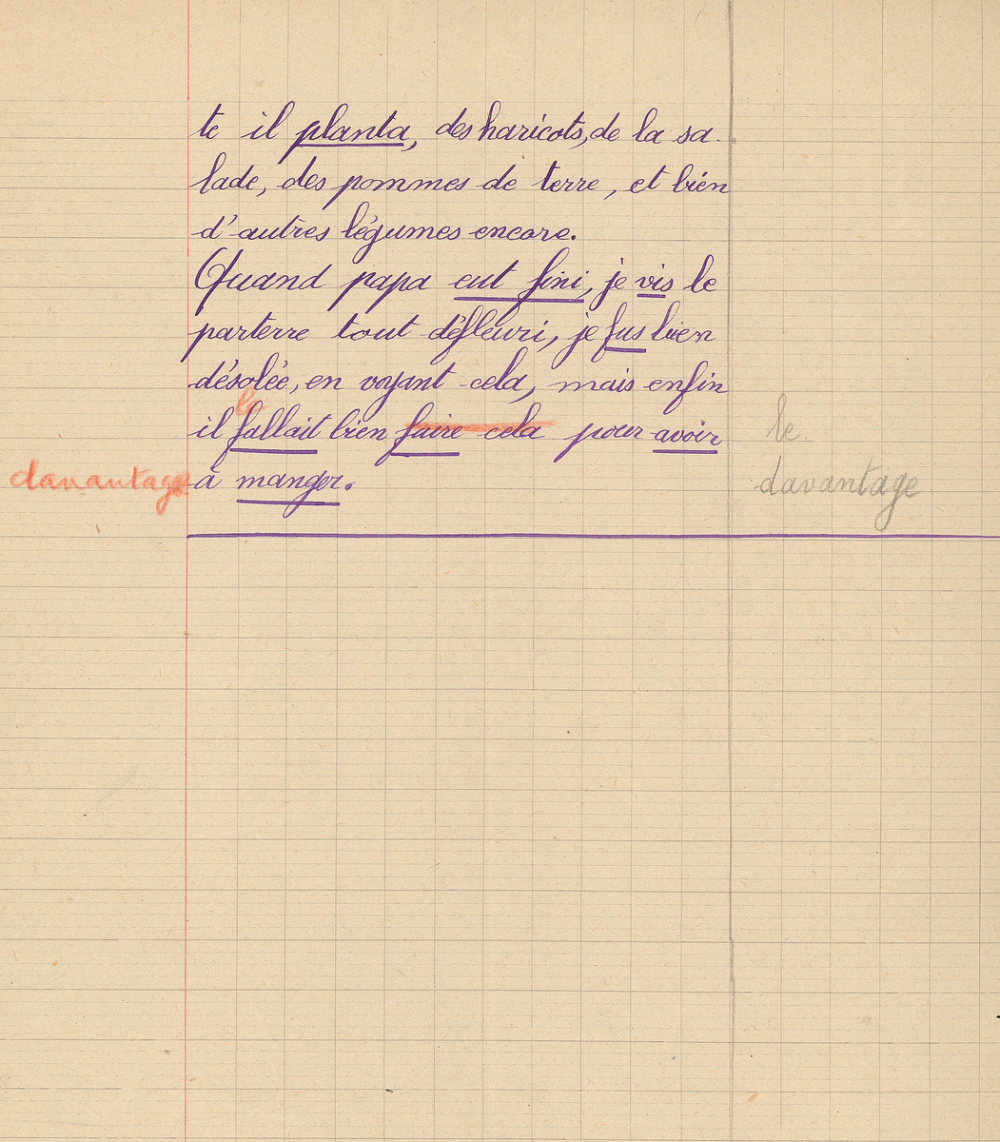 te il planta, des haricots, de la sa-
lade, des pommes de terre, et bien
d'autres légumes encore.
Quand papa eut fini, je vis le
parterre tout défleuri, je fus bien
désolée, en voyant cela, mais enfin
le
il fallait bien faire cela pour avoir
le
davantage à manger.
davantage